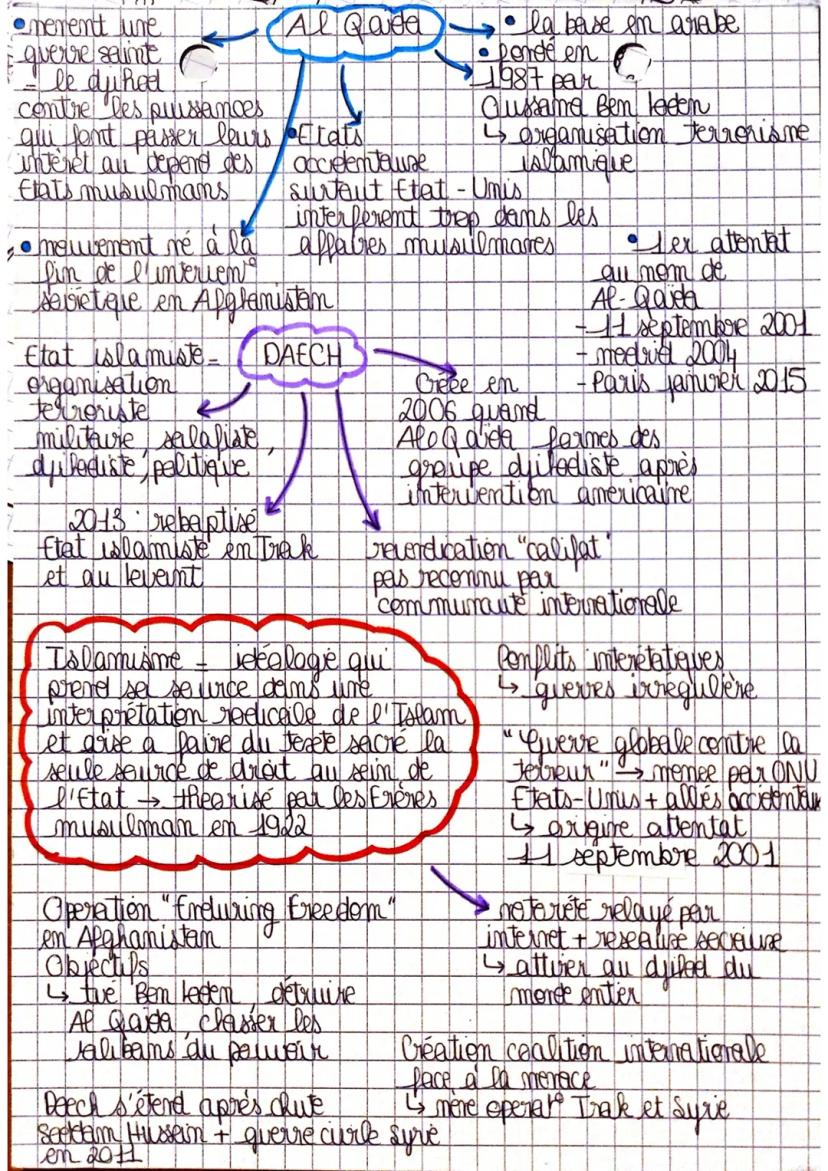 Al Qaida
• mènent une
guerre sainte
= le djihad
contre les puissances
qui font passer leurs
intérêt au depend des
Etats musulmans
• la base en arabe
• fondé en
1987 par
Oussama Ben laden
↳ organisation terrorisme
islamique
• Etats
occidentaux
surtout Etat-Unis
interfèrent trop dans les
affaires musulmanes
• mouvement né à la
fin de l'intervent°
soviétique en Afghanistan
• 1er attentat
au nom de
Al-Qaida
- 11 septembre 2001
- madrid 2004
- Paris janvier 2015
DAECH
Etat islamiste =
organisation
terroriste
militaire, salafiste,
djihadiste, politique
Créée en
2006 quand
Al Qaida formes des
groupe djihadiste après
intervention americaine
2013 : rebaptisé
Etat islamiste en Irak
et au levant
revendication "califat"
pas reconnu par
communauté internationale
Islamisme = idéologie qui
prend sa source dans une
interprétation radicale de l'Islam
et vise a faire du texte sacré la
seule source de droit au sein de
l'Etat → théorisé par les Frères
musulman en 1922
Conflits interétatiques
↳ guerres irrégulière
"Guerre globale contre la
terreur" → menee par ONU
Etats-Unis + alliés occidentaux
↳ origine attentat
11 septembre 2001
Operation "Enduring Freedom"
en Afghanistan
Objectifs
↳ tué Ben laden, détruire
Al Qaida, chasser les
talibans du pouvoir
notorété relayé par
internet + reseaux sociaux
↳ attirer au djihad du
monde entier
Création coalition internationale
face à la menace
↳ mène operat° Irak et Syrie
Daech s'étend après chute
Saddam Hussein + guerre civile Syrie
en 2011